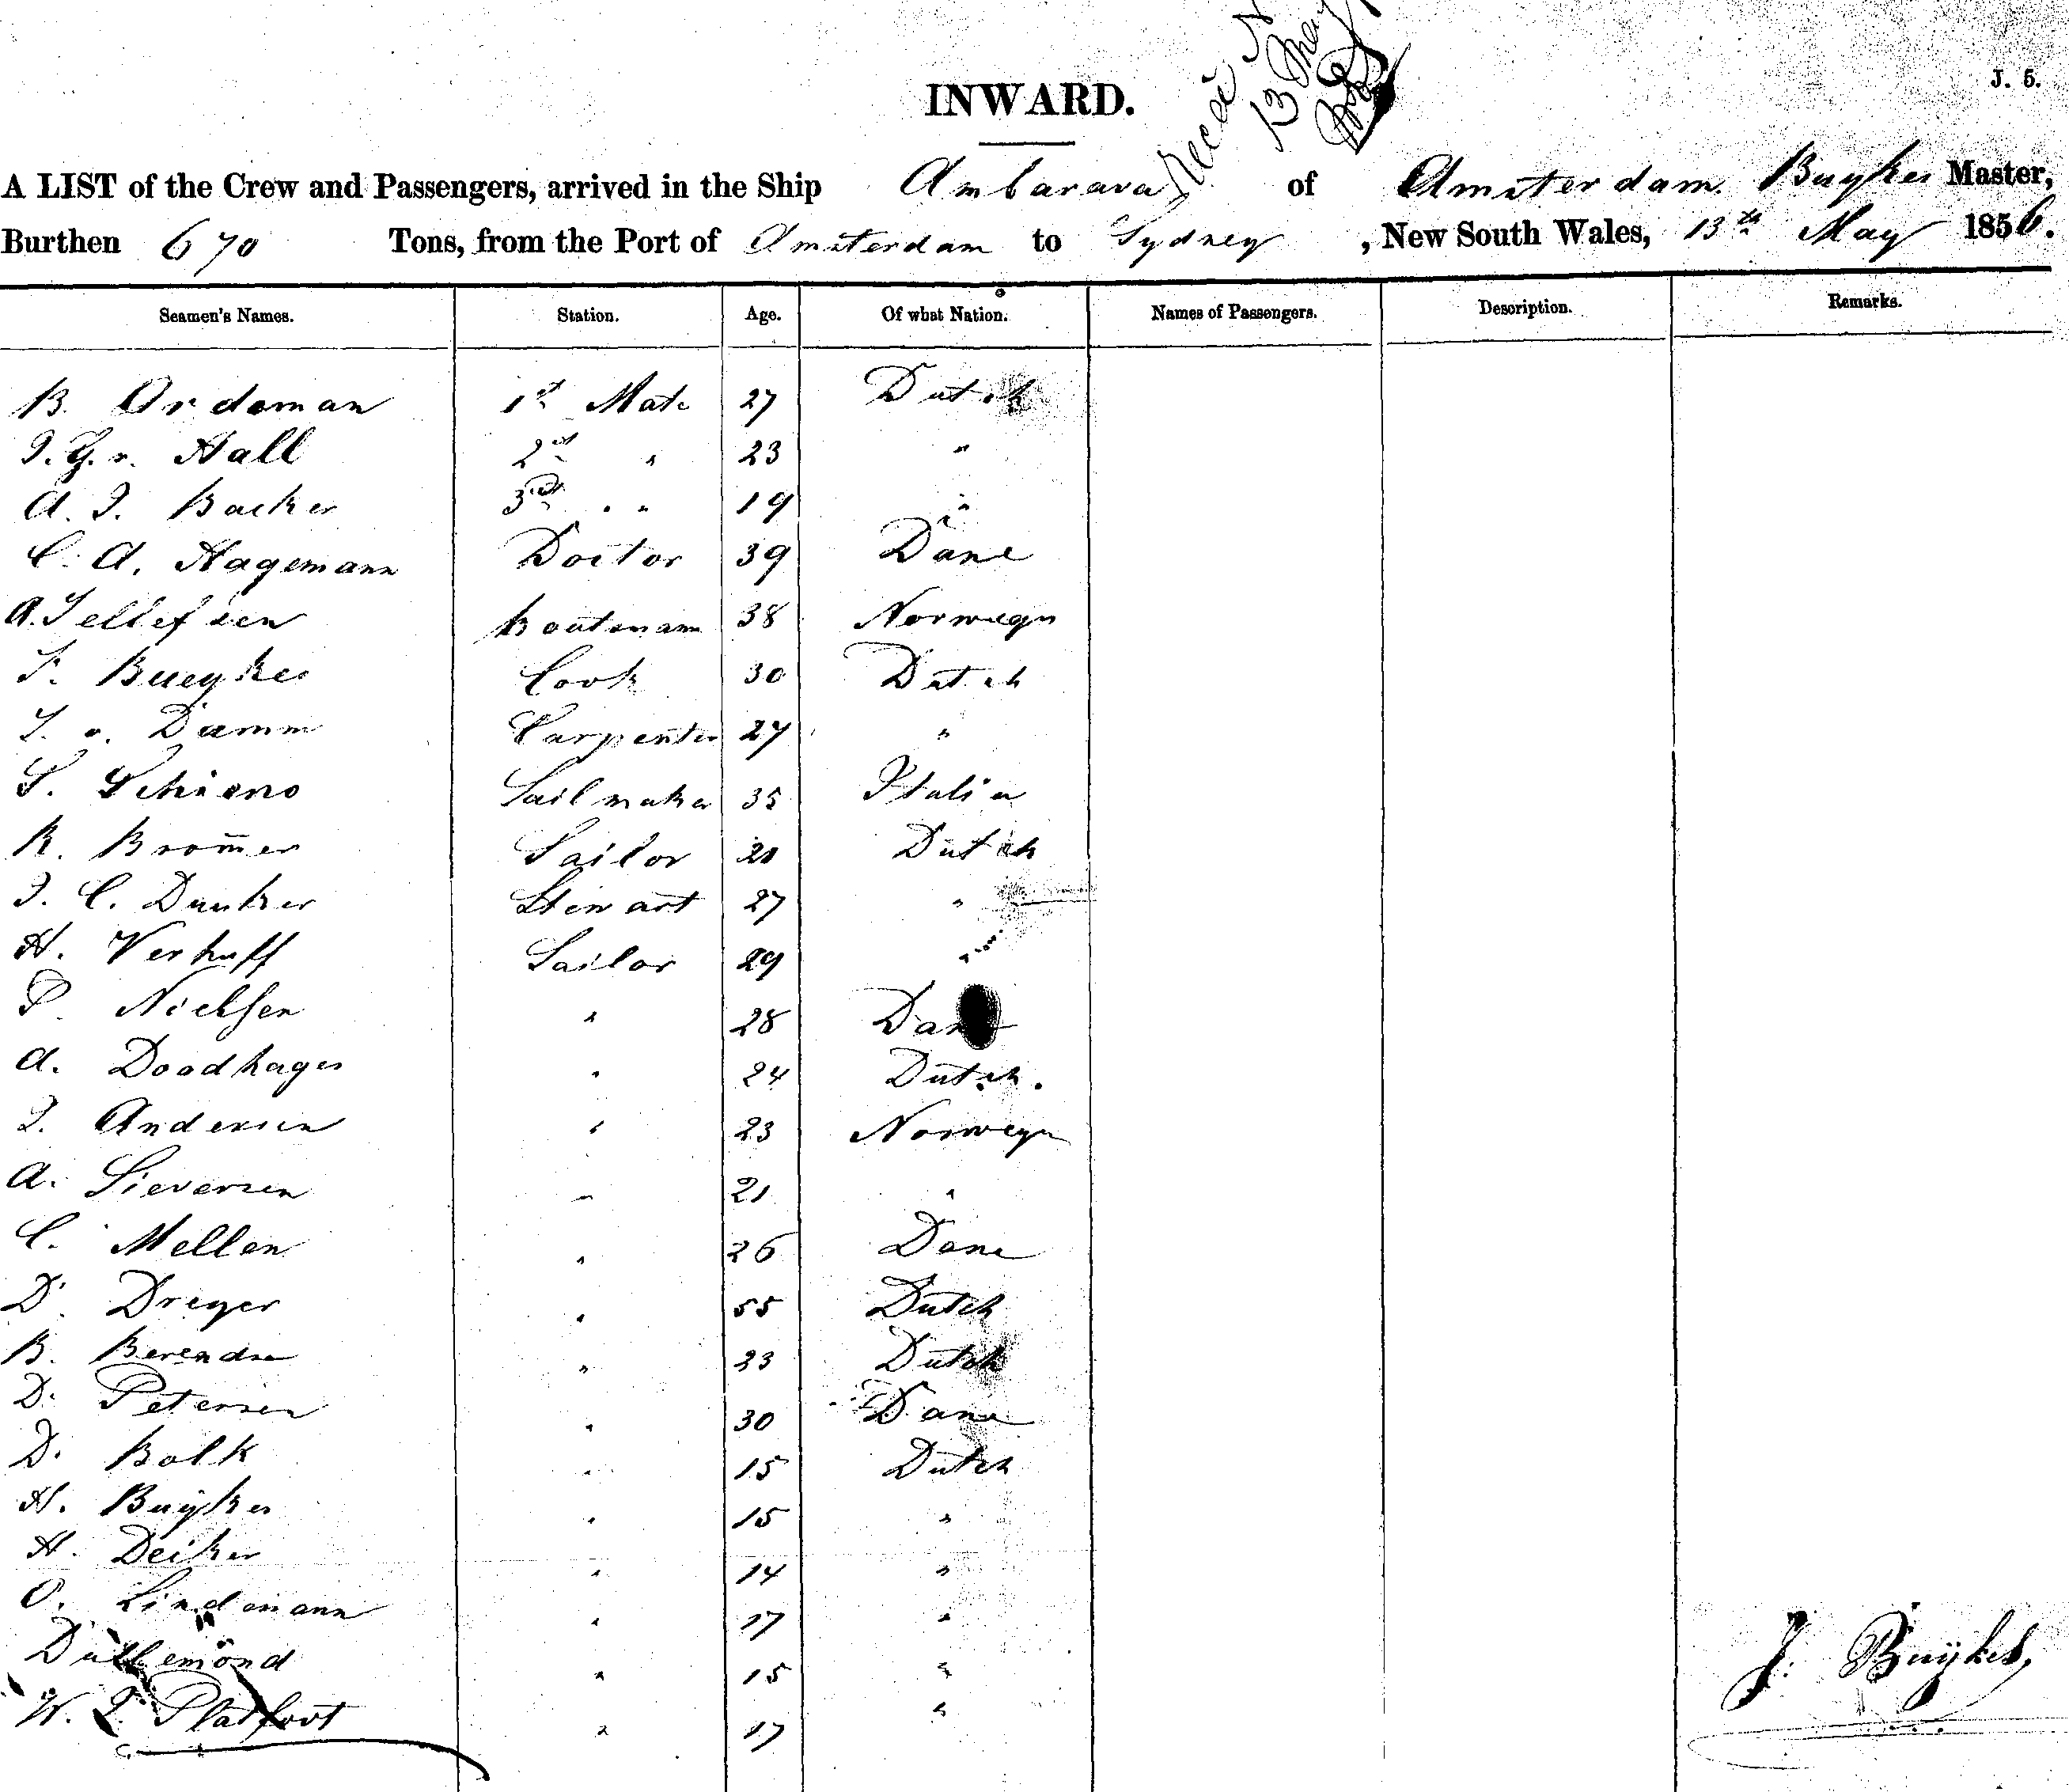 J. 5.
Rece'd
13 May
INWARD.
A LIST of the Crew and Passengers, arrived in the Ship Ambarava of Amsterdam. Buykes Master,
Burthen 670 Tons, from the Port of Amsterdam to Sydney, New South Wales, 13th May 1856.
Seamen's Names. Station. Age. Of what Nation. Names of Passengers. Description. Remarks.
B. Ordeman 1st Mate 27 Dutch
J. G. v. Hall 2nd " 23 "
A. J. Backer 3rd " " 19 "
C. A. Hagemann Doctor 39 Dane
A. Tellefsen boatsmann 38 Norwegn
F. Bueykes Cook 30 Dutch
J. v. Damm Carpenter 27 "
S. Schieno Sailmaker 35 Italia
R. Bromer Sailor 20 Dutch
J. C. Dunker Stewart 27 "
H. Verhuff Sailor 29 "
P. Nielsen " 28 Dane
A. Doodhages " 24 Dutch.
J. Andersen " 23 Norwegn
A. Sieversen " 21 "
C. Mellen " 26 Dane
D. Dreyer " 55 Dutch
B. Berendse " 23 Dutch
D. Petersen " 30 Dane
D. Bolk " 15 Dutch
H. Buÿkes " 15 "
H. Deiker " 14 "
O. Lindemann " 17 "
Dullemond " 15 "
W. J. Platfoot " 17 "
J. Buÿkes,